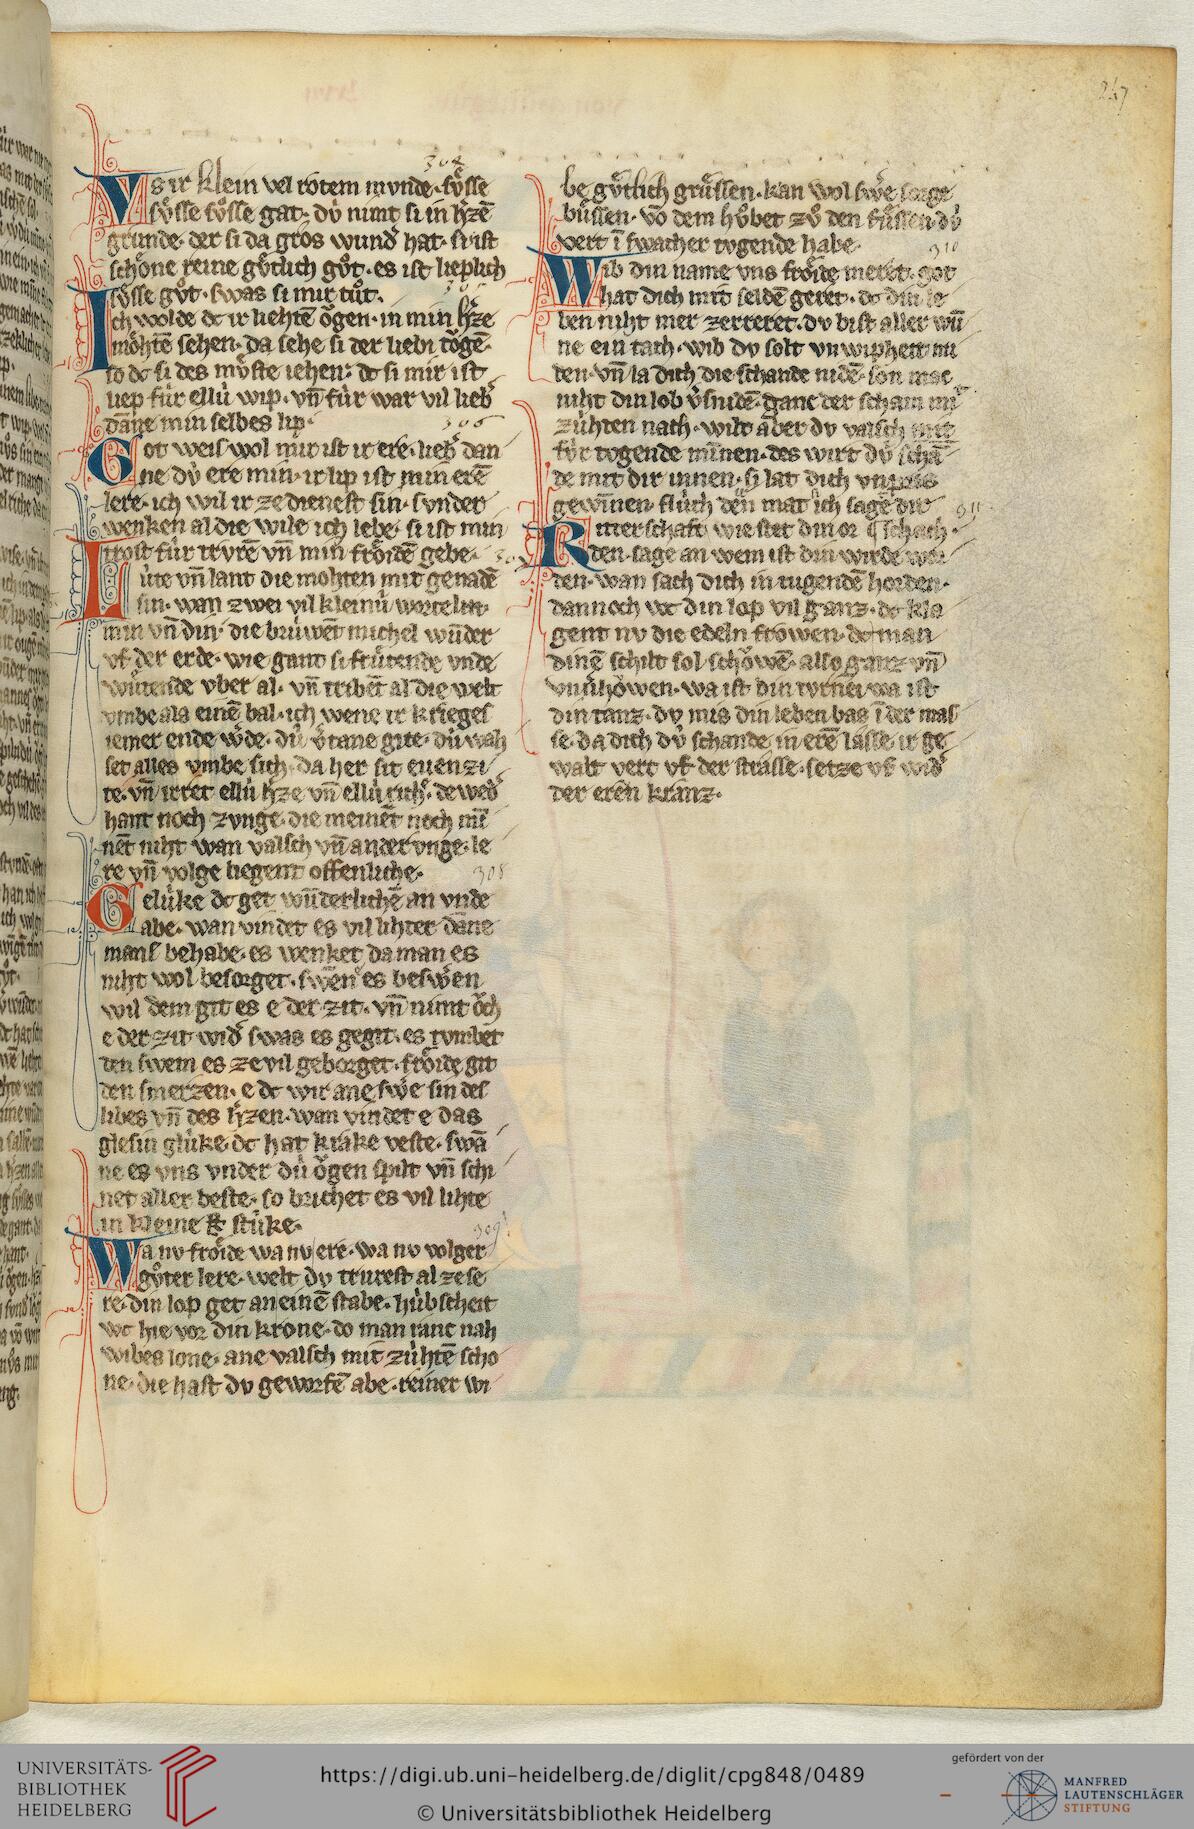 247
304
Vs ir klein vel rotem munde· sv̊sse
sv̊sse sv̊sse gat· dv̍ nimt si in h̾zē
grunde· der si da gros wund̾ hat· si ist
schöne reine gv̍tlich gv̊t· es ist lieplich
sv̊sse gv̊t· swas si mir tv̊t·
305
Ich wolde dc ir liehtē ögen· in min h̾ze
möhtē sehen· da sehe si der liebi tögē·
so dc si des mv̍ste iehen· dc si mir ist
liep fur ellu̍ wip· vn̄ fu̍r war vil lieb̾
dāne min selbes lip·
306
Got weis wol mir ist ir ere· lieb̾ dan
ne dv̍ ere min· ir lip ist min erē
lere· ich wil ir ze dienest sin· sunder
wenken al die wile ich lebe· si ist min
trost fu̍r trurē vn̄ min fröidē gebe·
Lu̍te vn̄ lant die mohten mit genadē
sin· wan zwei vil kleinu̍ wortelin·
min vn̄ din· die bru̍wēt michel wūder
vf der erde· wie gant si fru̍tende vnde
wu̍tende vber al· vn̄ tribēt al die welt
vmbe als einē bal· ich wene ir krieges
iemer ende w̾de· du̍ v̾tane gite· du̍ wah
set alles vmbe sich· da her sit euen zi
te· vn̄ irret ellu̍ h̾ze vn̄ ellu̍ rich̾· dewed̾
hant noch zunge· die meinēt noch mī
nēt niht wan valsch vn̄ anderunge· le
re vn̄ volge liegent offenliche·
308
Gelu̍ke dc get wūderlichē an vnde
abe· wan vindet es vil lihter dāne
mans behabe· es wenket da man es
niht wol besorget· swen es beswēn
wil dem git es e der zit· vn̄ nimt öch
e der zit wid̾ swas es gegit· es tumbet
den swem es ze vil geborget· fröide git
den smerzen· e dc wir ane swe̍ sin des
libes vn̄ des h̾zen· wan vindet e das
glesin glu̍ke· dc hat kranke veste· swā
ne es vns vnder du̍ ögen spilt vn̄ schi
net aller beste· so brichet es vil lihte
in kleine stu̍ke·
309
Wa nv fröide wa nv ere· wa nv volger
gv̊ter lere· welt du trurest al ze se
re· din lop get an einē stabe· hu̍bscheit
wc hie vor din krone· do man ranc nah
wibes lone· ane valsch mit zu̍htē scho
ne· die hast du geworfē abe· reiner wi
be gv̍tlich gru̍ssen· kan wol swe̍re sorge
bu̍ssen· vō dem hv̊bet zv̊ den fv̍ssen· du̍
vert ī swacher tvgende habe·
310
Wib din name vns fröide meret· got
hat dich mit seldē geret· dc din le
ben niht mer zerreret· du bist aller wū
ne ein tach· wib du solt vnwipheit mi
den· vn̄ la dich die schande nidē· son mac
niht din lob v̾snidē· ganc der scham mī
zu̍hten nach· wilt aber du valsch mit
fu̍r tvgende minnen· des wirt du̍ schā
de mit dir innen· si lat dich vnpris
gewinnen· flu̍ch den̄ mat ich sage dir
311
Ritterschaft wie stet din or ¶ schach·
den· sage an wem ist din wirde wor
den· wan sach dich in tugendē horden·
dannoch wc din lop vil ganz· dc kla
gent nv die edeln frowen· dc man
dinē schilt sol schöwē· also ganz vn̄
vnu̍höwen· wa ist din turnei· wa ist
din tanz· dv mis din leben bas ī der mas
se· da dich du̍ schande in erē lasse· ir ge
walt vert vf der strasse· setze vf wid̾
der eren kranz·
UNIVERSITÄTS-
BIBLIOTHEK
HEIDELBERG
https://digi.ub.uni-heidelberg.de/diglit/cpg848/0489
© Universitätsbibliothek Heidelberg
gefördert von der
MANFRED
LAUTENSCHLÄGER
STIFTUNG